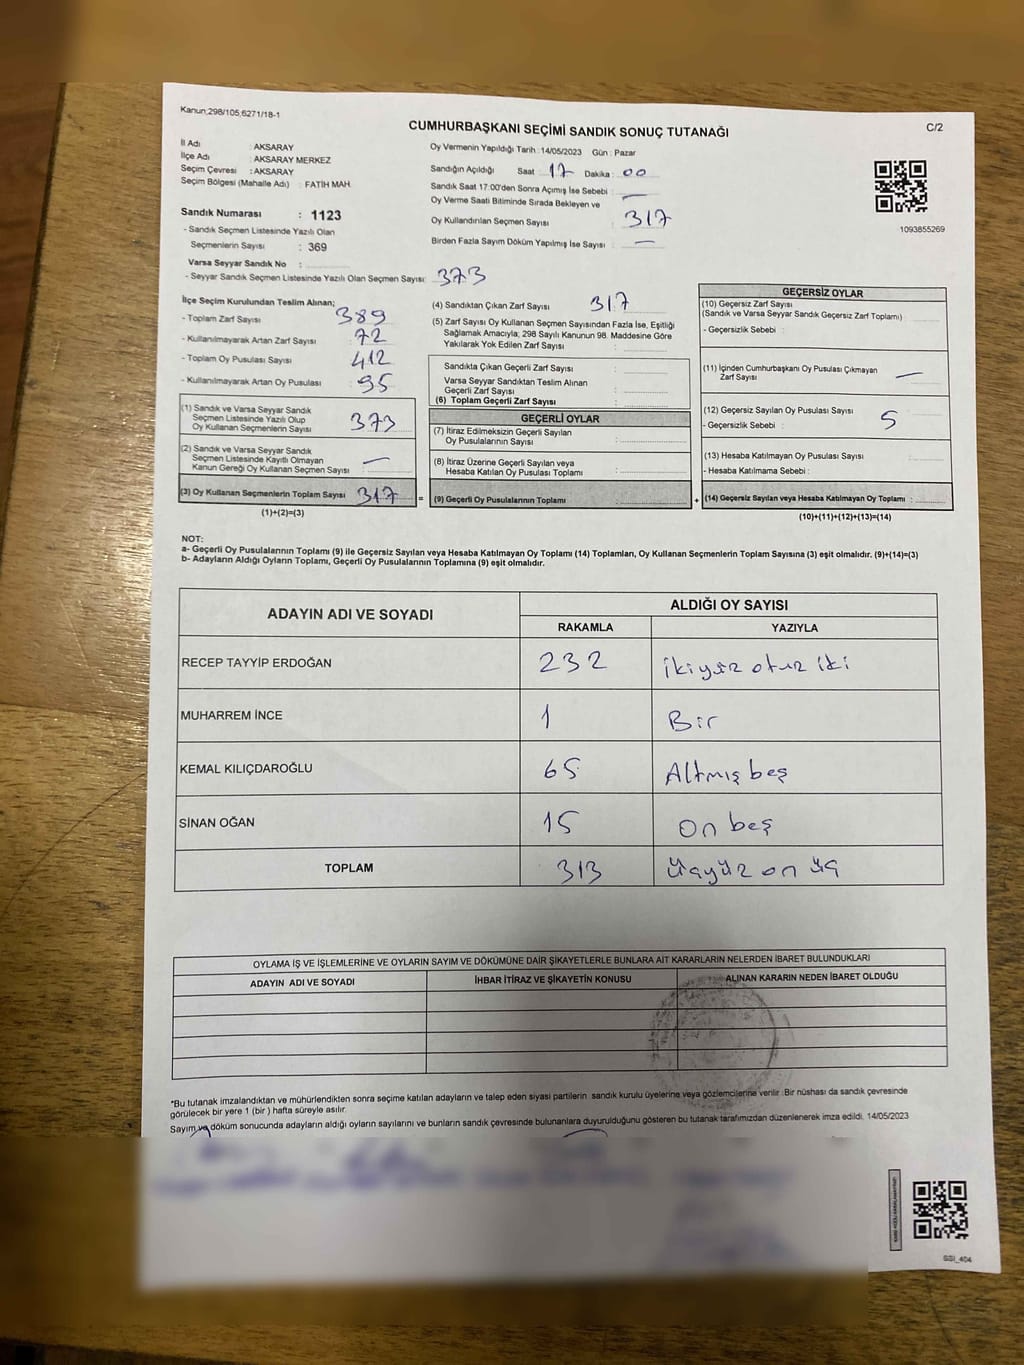 Kanun;298/105;6271/18-1
C/2
CUMHURBAŞKANI SEÇİMİ SANDIK SONUÇ TUTANAĞI
İl Adı : AKSARAY
İlçe Adı : AKSARAY MERKEZ
Seçim Çevresi : AKSARAY
Seçim Bölgesi (Mahalle Adı) : FATİH MAH.
Oy Vermenin Yapıldığı Tarih :14/05/2023 Gün : Pazar
Sandığın Açıldığı Saat 17 Dakika : 00
Sandık Saat 17:00'den Sonra Açımış İse Sebebi : —
Oy Verme Saati Bitiminde Sırada Bekleyen ve
Oy Kullandırılan Seçmen Sayısı : 317
Birden Fazla Sayım Döküm Yapılmış İse Sayısı : —
1093855269
Sandık Numarası : 1123
- Sandık Seçmen Listesinde Yazılı Olan
Seçmenlerin Sayısı : 369
Varsa Seyyar Sandık No :
- Seyyar Sandık Seçmen Listesinde Yazılı Olan Seçmen Sayısı: 373
İlçe Seçim Kurulundan Teslim Alınan;
- Toplam Zarf Sayısı : 389
- Kullanılmayarak Artan Zarf Sayısı : 72
- Toplam Oy Pusulası Sayısı : 412
- Kullanılmayarak Artan Oy Pusulası : 95
(1) Sandık ve Varsa Seyyar Sandık
Seçmen Listesinde Yazılı Olup
Oy Kullanan Seçmenlerin Sayısı : 373
(2) Sandık ve Varsa Seyyar Sandık
Seçmen Listesinde Kayıtlı Olmayan
Kanun Gereği Oy Kullanan Seçmen Sayısı : —
(3) Oy Kullanan Seçmenlerin Toplam Sayısı : 317
(1)+(2)=(3)
(4) Sandıktan Çıkan Zarf Sayısı : 317
(5) Zarf Sayısı Oy Kullanan Seçmen Sayısından Fazla İse, Eşitliği
Sağlamak Amacıyla; 298 Sayılı Kanunun 98. Maddesine Göre
Yakılarak Yok Edilen Zarf Sayısı :
Sandıkta Çıkan Geçerli Zarf Sayısı :
Varsa Seyyar Sandıktan Teslim Alınan
Geçerli Zarf Sayısı :
(6) Toplam Geçerli Zarf Sayısı :
GEÇERLİ OYLAR
(7) İtiraz Edilmeksizin Geçerli Sayılan
Oy Pusulalarının Sayısı :
(8) İtiraz Üzerine Geçerli Sayılan veya
Hesaba Katılan Oy Pusulası Toplamı :
= (9) Geçerli Oy Pusulalarının Toplamı :
GEÇERSİZ OYLAR
(10) Geçersiz Zarf Sayısı
(Sandık ve Varsa Seyyar Sandık Geçersiz Zarf Toplamı) :
- Geçersizlik Sebebi :
(11) İçinden Cumhurbaşkanı Oy Pusulası Çıkmayan
Zarf Sayısı : —
(12) Geçersiz Sayılan Oy Pusulası Sayısı : 5
- Geçersizlik Sebebi :
(13) Hesaba Katılmayan Oy Pusulası Sayısı :
- Hesaba Katılmama Sebebi :
+ (14) Geçersiz Sayılan veya Hesaba Katılmayan Oy Toplamı :
(10)+(11)+(12)+(13)=(14)
NOT:
a- Geçerli Oy Pusulalarının Toplamı (9) ile Geçersiz Sayılan veya Hesaba Katılmayan Oy Toplamı (14) Toplamları, Oy Kullanan Seçmenlerin Toplam Sayısına (3) eşit olmalıdır. (9)+(14)=(3)
b- Adayların Aldığı Oyların Toplamı, Geçerli Oy Pusulalarının Toplamına (9) eşit olmalıdır.
ADAYIN ADI VE SOYADI ALDIĞI OY SAYISI
RAKAMLA YAZIYLA
RECEP TAYYİP ERDOĞAN 232 ikiyüz otuz iki
MUHARREM İNCE 1 Bir
KEMAL KILIÇDAROĞLU 65 Altmış beş
SİNAN OĞAN 15 On beş
TOPLAM 313 üçyüz on üç
OYLAMA İŞ VE İŞLEMLERİNE VE OYLARIN SAYIM VE DÖKÜMÜNE DAİR ŞİKAYETLERLE BUNLARA AİT KARARLARIN NELERDEN İBARET BULUNDUKLARI
ADAYIN ADI VE SOYADI İHBAR İTİRAZ VE ŞİKAYETİN KONUSU ALINAN KARARIN NEDEN İBARET OLDUĞU
*Bu tutanak imzalandıktan ve mühürlendikten sonra seçime katılan adayların ve talep eden siyasi partilerin sandık kurulu üyelerine veya gözlemcilerine verilir. Bir nüshası da sandık çevresinde
görülecek bir yere 1 (bir ) hafta süreyle asılır.
Sayım ve döküm sonucunda adayların aldığı oyların sayılarını ve bunların sandık çevresinde bulunanlara duyurulduğunu gösteren bu tutanak tarafımızdan düzenlenerek imza edildi. 14/05/2023
GSI_404